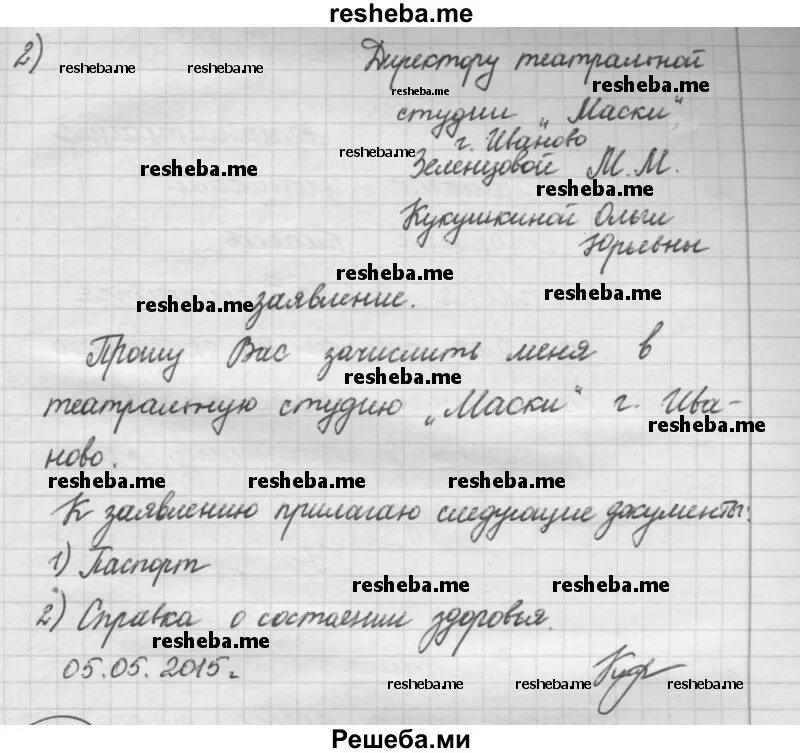 resheba.me
2) Директору театральной
resheba.me resheba.me resheba.me
resheba.me
студии „Маски“,
г. Иваново
resheba.me
resheba.me Зеленцовой М. М.
resheba.me
Кукушкиной Ольги
Юрьевны
resheba.me
resheba.me заявление. resheba.me
Прошу Вас зачислить меня в
resheba.me
театральную студию „Маски“ г. Ива-
resheba.me
ново.
resheba.me resheba.me resheba.me
К заявлению прилагаю следующие документы:
1) Паспорт
resheba.me resheba.me
2) Справка о состоянии здоровья.
resheba.me
05.05.2015г.
resheba.me resheba.me resheba.me
Решеба.ми